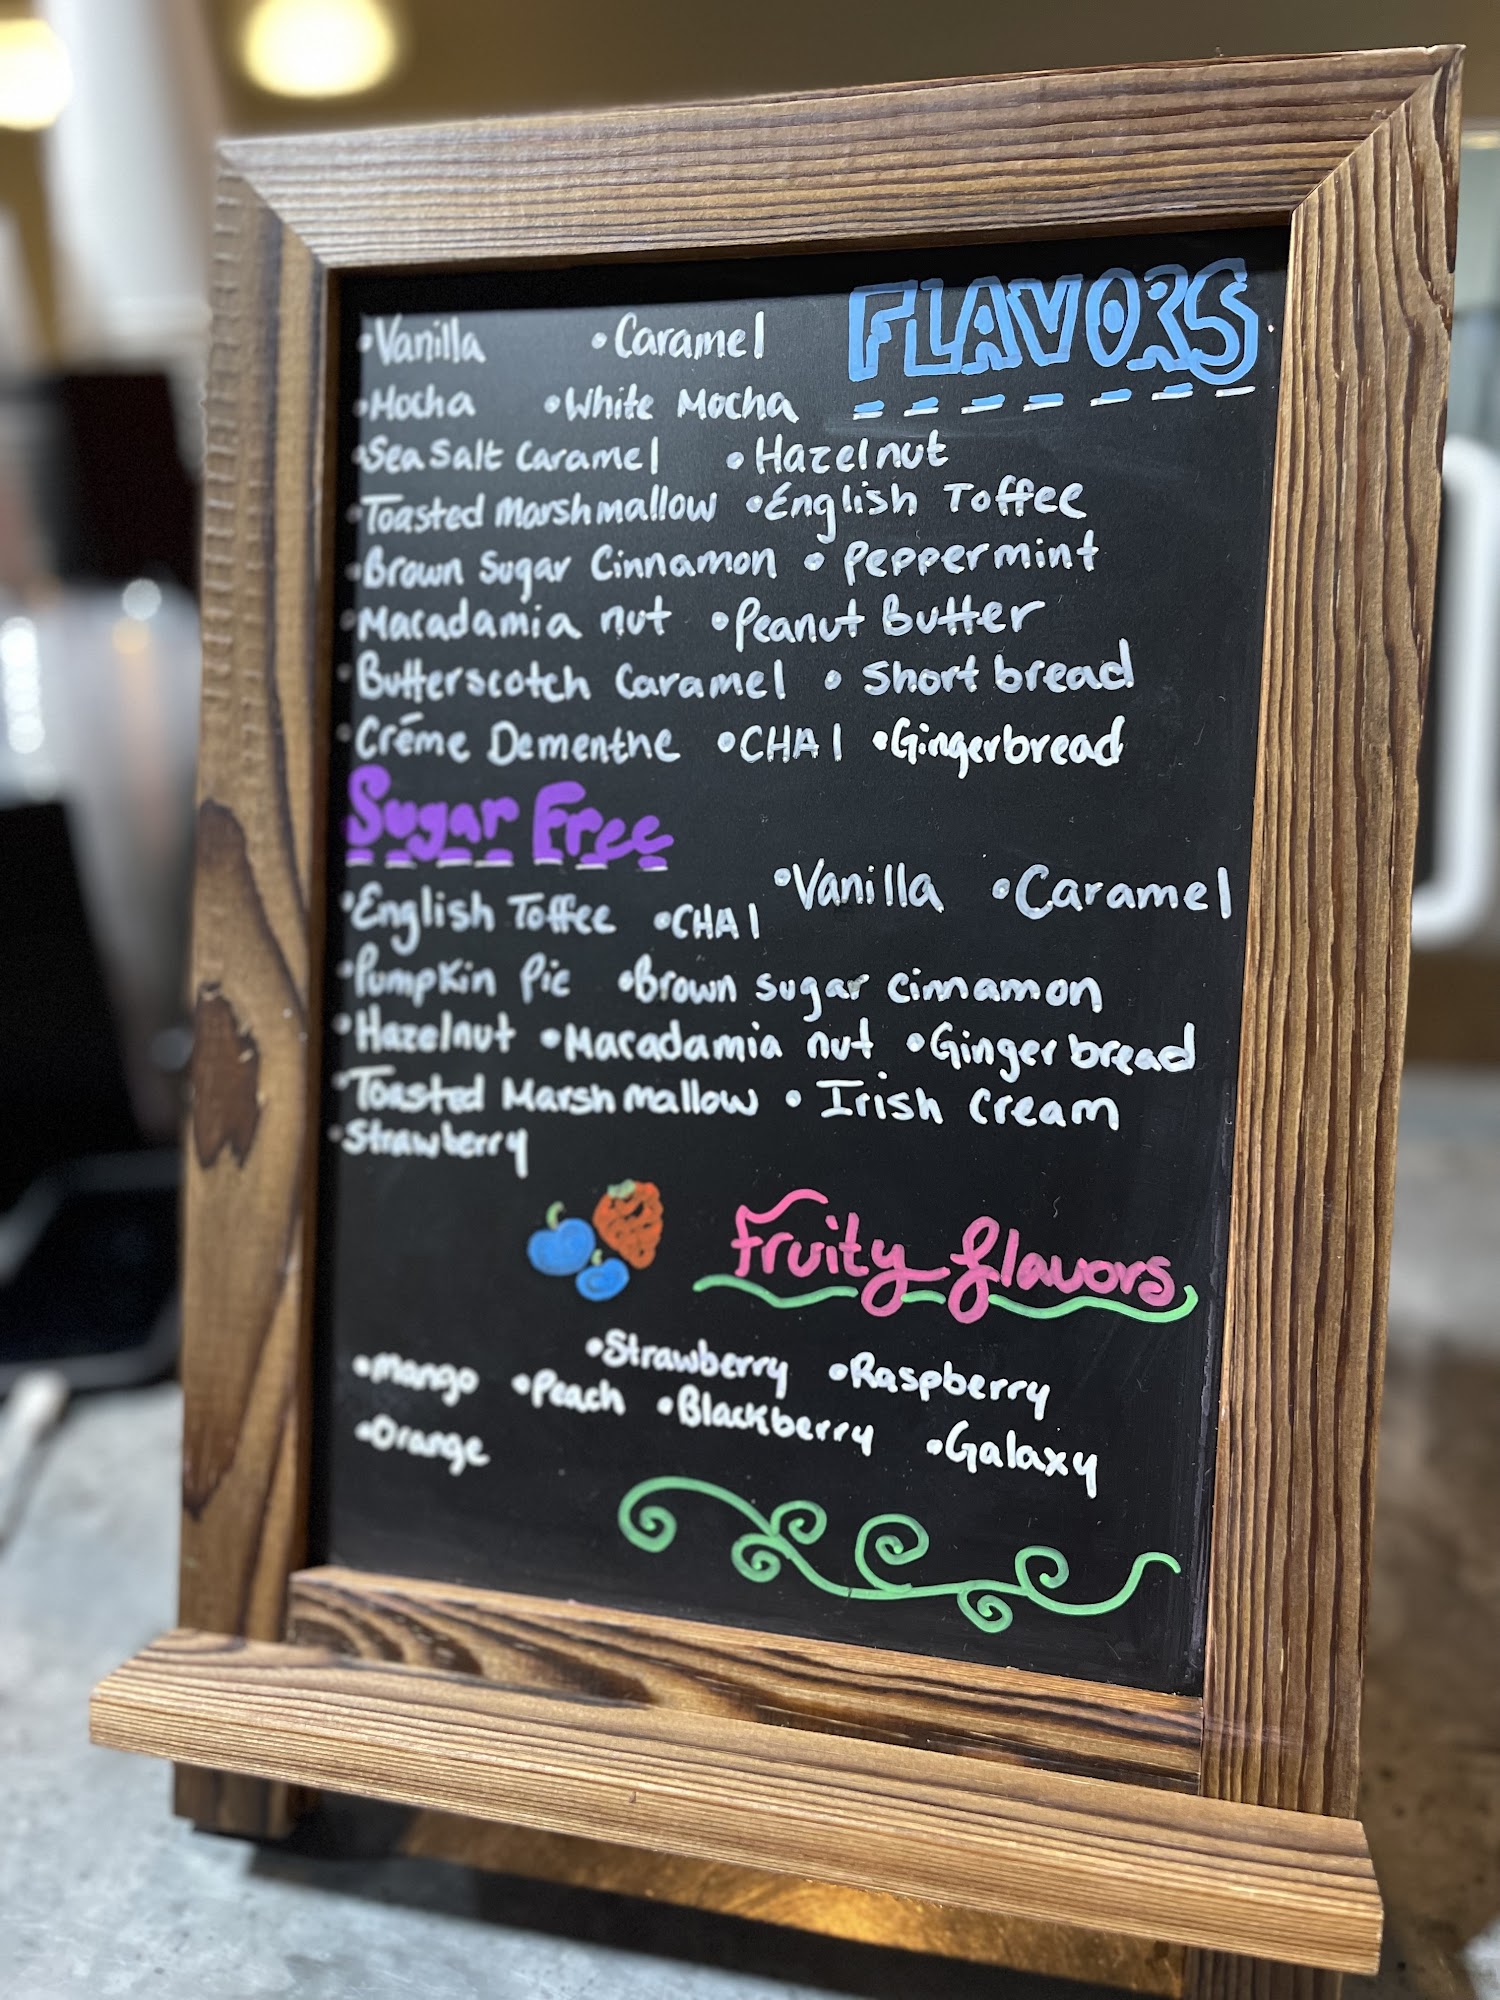 FLAVORS
•Vanilla •Caramel
•Mocha •White Mocha
•Sea Salt Caramel •Hazelnut
•Toasted Marshmallow •English Toffee
•Brown Sugar Cinnamon •Peppermint
•Macadamia nut •Peanut Butter
•Butterscotch Caramel •Short bread
•Créme Dementhe •CHAI •Gingerbread
Sugar Free
•Vanilla •Caramel
•English Toffee •CHAI
•Pumpkin Pie •Brown sugar cinnamon
•Hazelnut •Macadamia nut •Ginger bread
•Toasted Marshmallow •Irish Cream
•Strawberry
Fruity flavors
•Strawberry •Raspberry
•Mango •Peach •Blackberry •Galaxy
•Orange